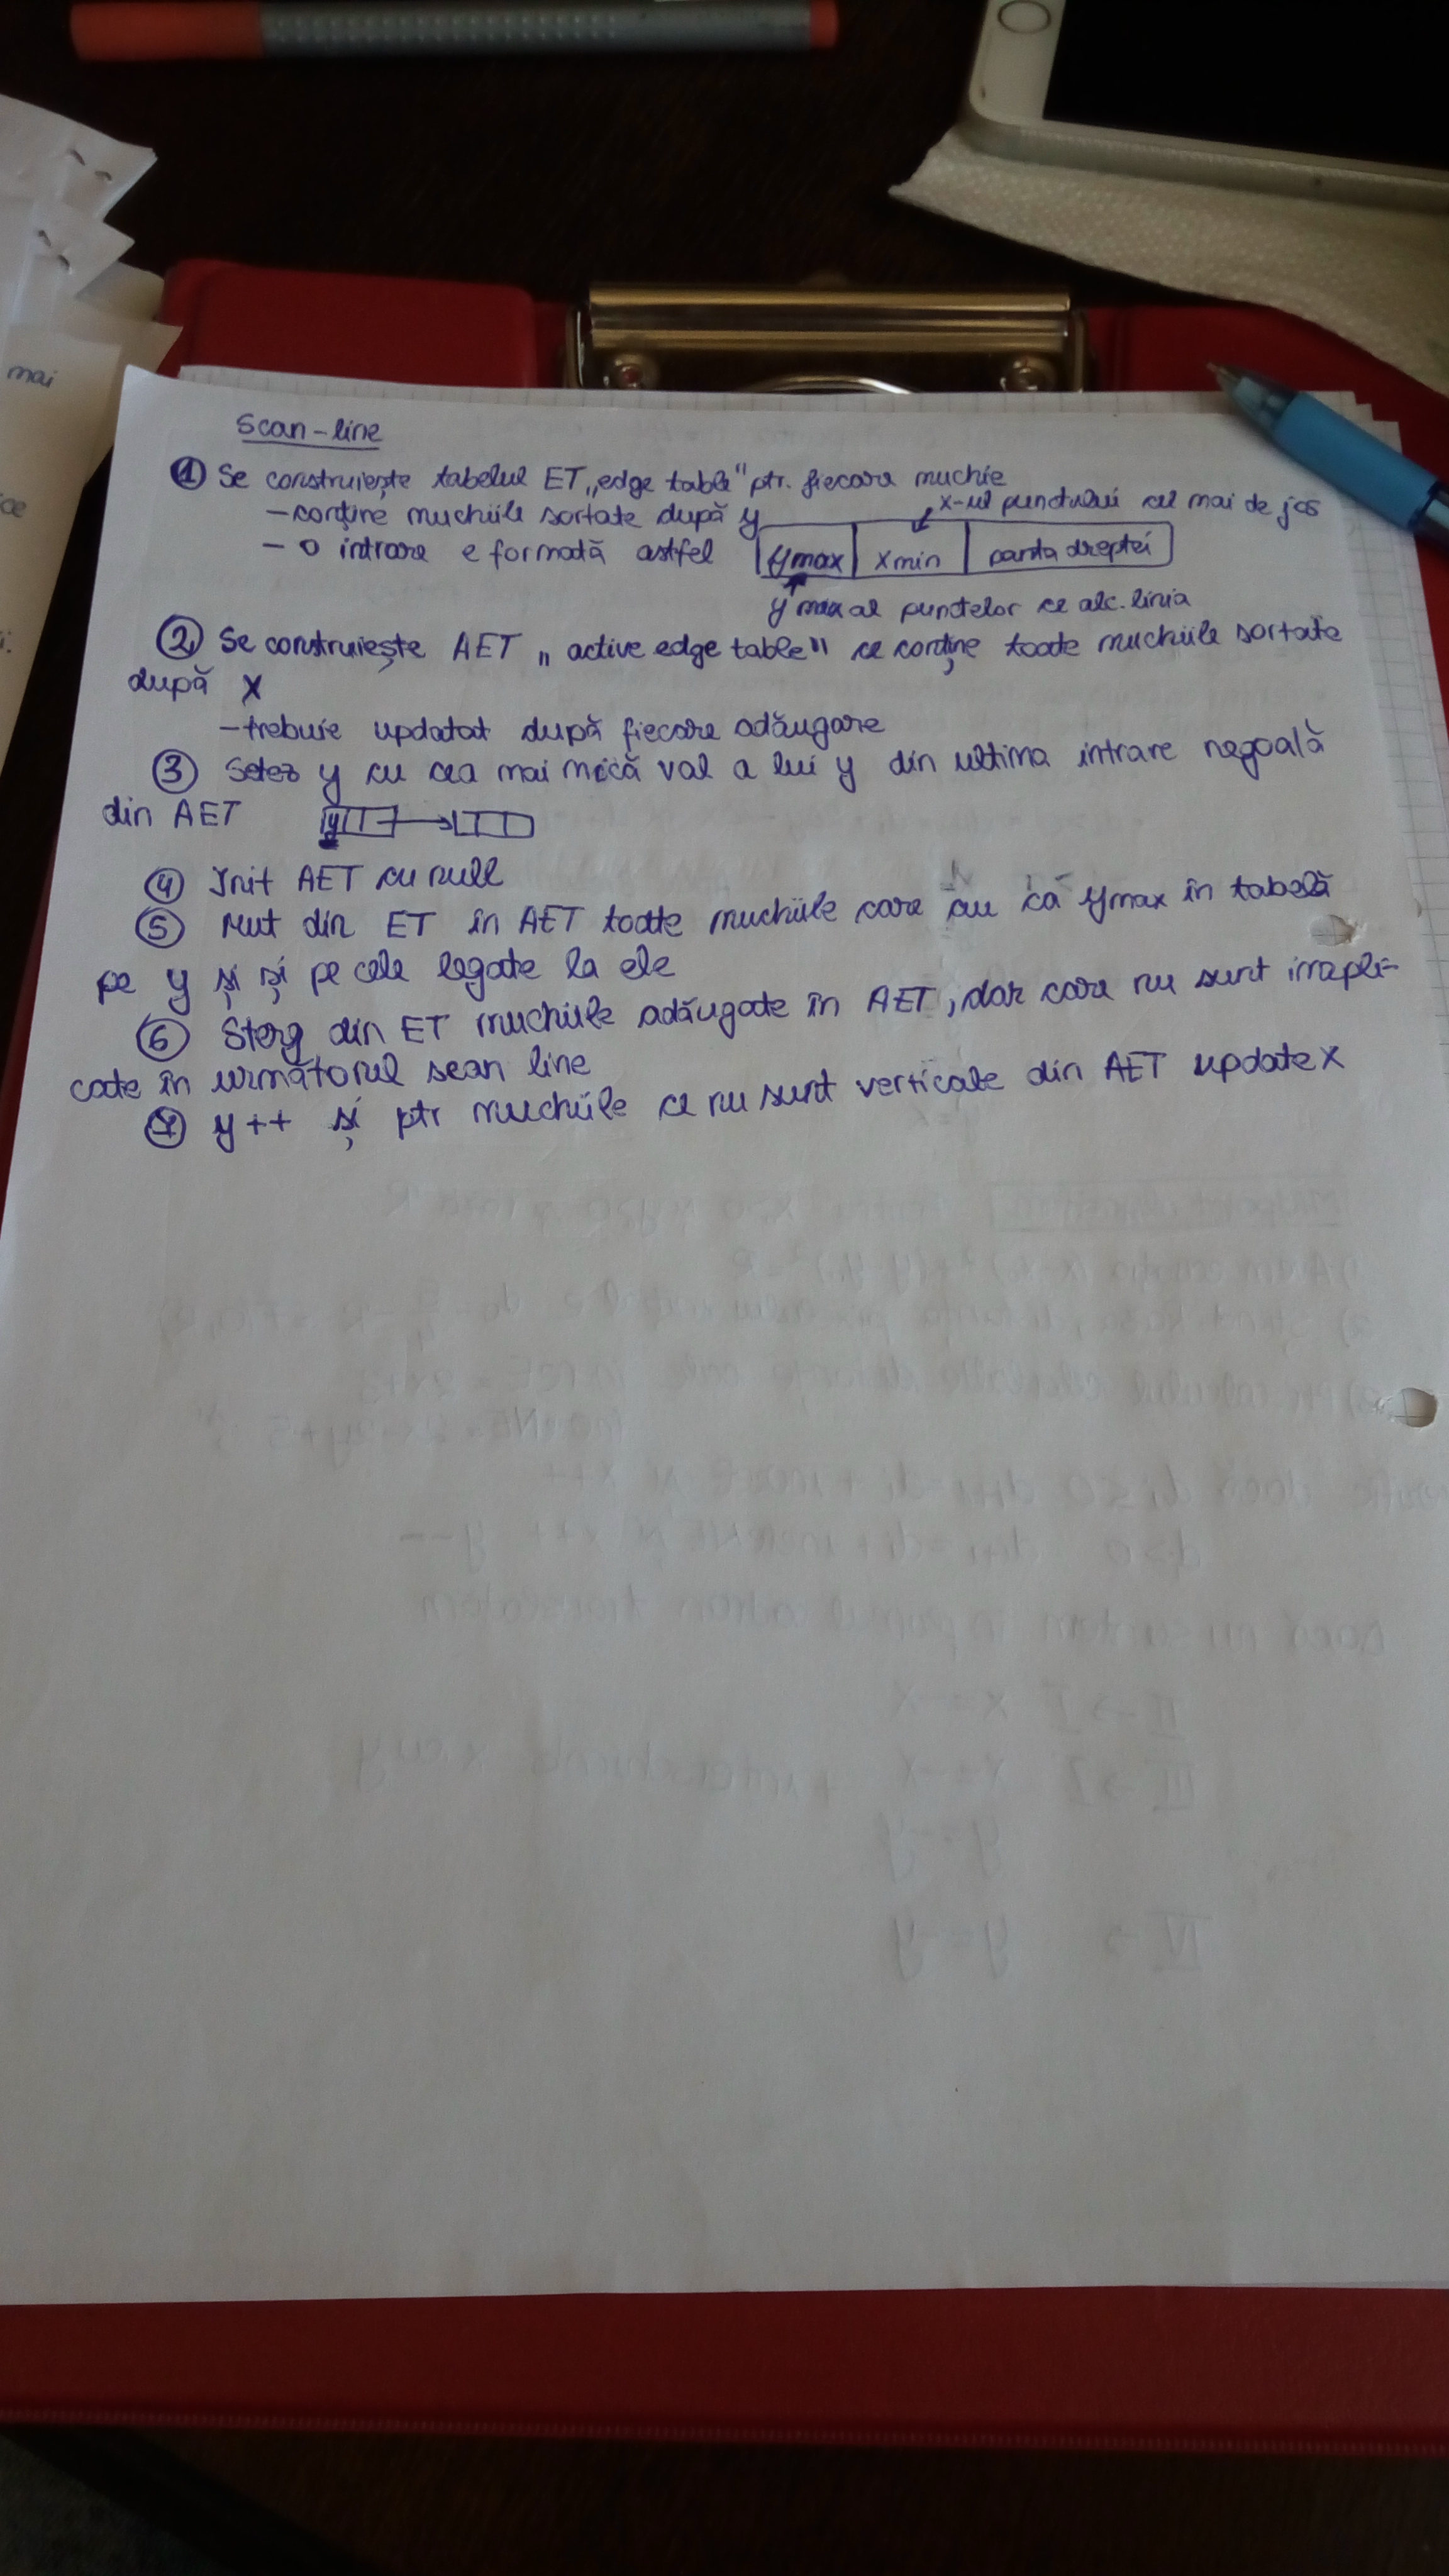 mai
Scan-line
① Se construiește tabelul ET „edge table" ptr. fiecare muchie
- conține muchiile sortate după y
x-ul punctului cel mai de jos
- o intrare e formată astfel ymax xmin panta dreptei
y max al punctelor ce alc. linia
② Se construiește AET „active edge table" ce conține toate muchiile sortate
după x
- trebuie updatat după fiecare adăugare
③ Setez y cu cea mai mică val a lui y din ultima intrare negoală
din AET y
④ Init AET cu null
⑤ Mut din ET în AET toate muchiile care au ca ymax în tabelă
pe y și și pe cele legate la ele
⑥ Sterg din ET muchiile adăugate în AET, dar care nu sunt irrapli-
cate în următorul scan line
⑦ y++ și ptr muchiile ce nu sunt verticale din AET update x